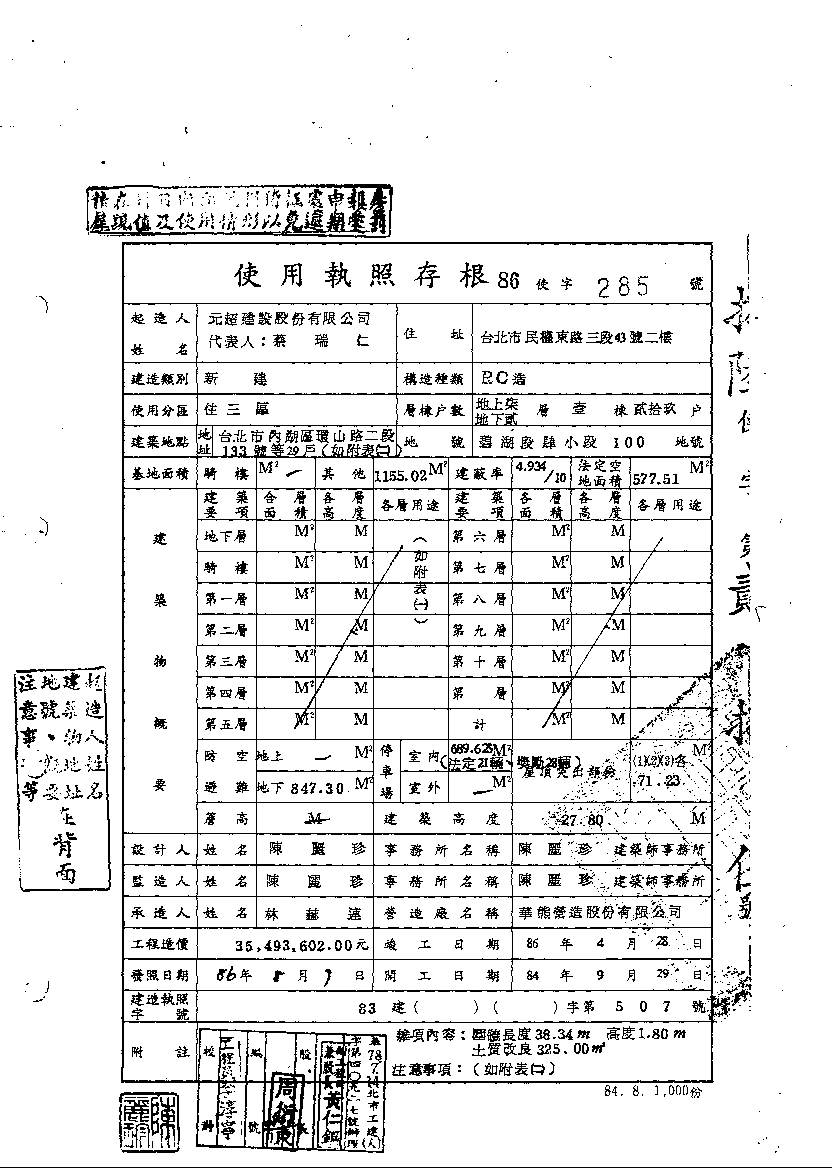 使用執照存根 86 使字 285 號
起造人姓名 元超建設股份有限公司 代表人：蔡瑞仁 住址 台北市民權東路三段43號二樓
建造類別 新建 構造種類 RC造
使用分區 住三區 層棟戶數 地上柒 地下貳 層 壹 棟 貳拾玖 戶
建築地點 地址 台北市內湖區環山路二段133號等29戶(如附表㈡) 地號 碧湖段肆小段 100 地號
基地面積 騎樓 M² 一 其他 1155.02 M² 建蔽率 4.934/10 法定空地面積 577.51 M²
建築物概要
建築要項 各層面積 各層高度 各層用途 建築要項 各層面積 各層高度 各層用途
地下層 M² M (如附表㈠) 第六層 M² M
騎樓 M² M 第七層 M² M
第一層 M² M 第八層 M² M
第二層 M² M 第九層 M² M
第三層 M² M 第十層 M² M
第四層 M² M 第 層 M² M
第五層 M² M 計 M² M
防空避難 地上 一 M² 停車場 室內 689.625M² (法定21輛、獎勵28輛) 屋頂突出部份 (1)(2)(3)各 71.23 M²
地下 847.30 M² 室外 一 M²
簷高 M 建築高度 27.80 M
設計人 姓名 陳麗珍 事務所名稱 陳麗珍 建築師事務所
監造人 姓名 陳麗珍 事務所名稱 陳麗珍 建築師事務所
承造人 姓名 林 遠 營造廠名稱 華熊營造股份有限公司
工程造價 35,493,602.00元 竣工日期 86 年 4 月 28 日
發照日期 86年 8 月 日 開工日期 84 年 9 月 29 日
建造執照字號 83 建( )( )字第 507 號
附註 雜項內容：圍牆長度38.34m 高度1.80m
土質改良325.00㎡
注意事項：(如附表㈡)
84.8.1,000份
起造人姓名
建築物地址
地號、概要
注意事 等
在背面
校對
編號
股長
周
黃仁